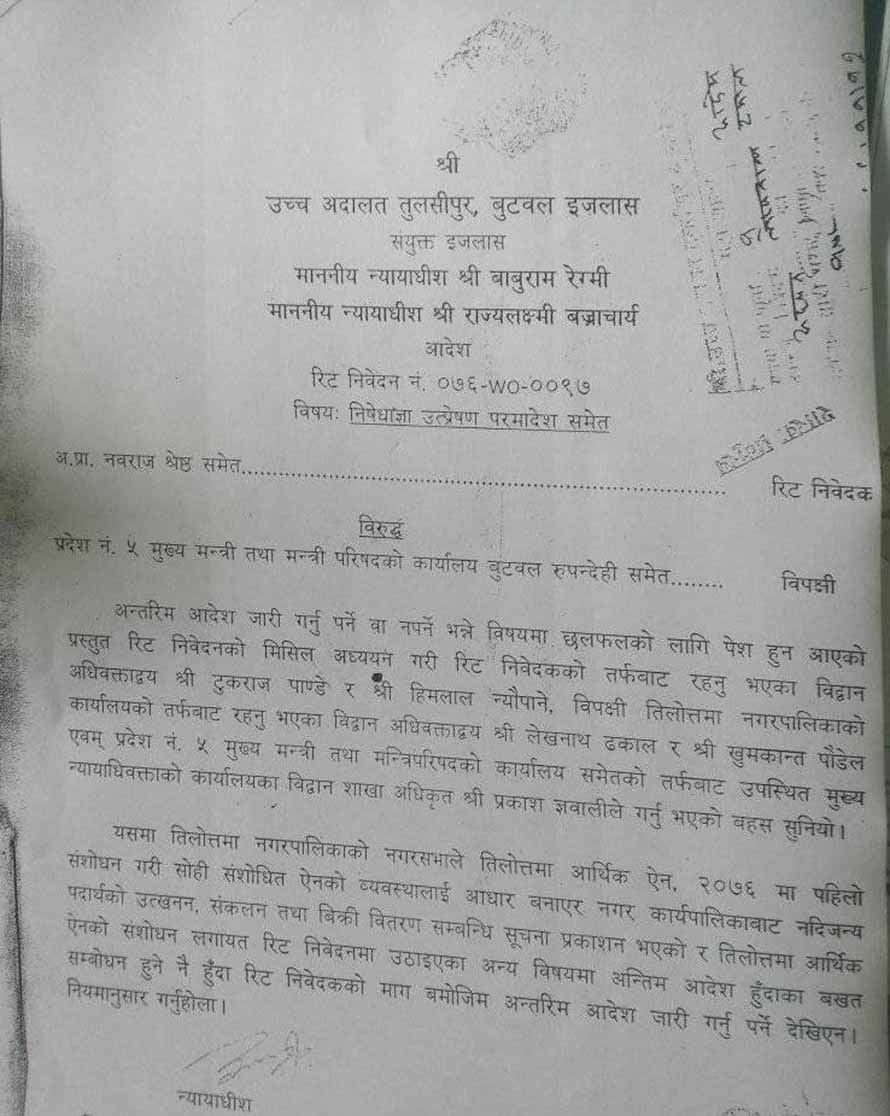 श्री
उच्च अदालत तुलसीपुर, बुटवल इजलास
संयुक्त इजलास
माननीय न्यायाधीश श्री बाबुराम रेग्मी
माननीय न्यायाधीश श्री राज्यलक्ष्मी बज्राचार्य
आदेश
रिट निवेदन नं. ०७६-WO-००९७
विषयः निषेधाज्ञा उत्प्रेषण परमादेश समेत
अ.प्रा. नवराज श्रेष्ठ समेत........................................................................ रिट निवेदक
विरुद्ध
प्रदेश नं. ५ मुख्य मन्त्री तथा मन्त्री परिषदको कार्यालय बुटवल रुपन्देही समेत........ विपक्षी
अन्तरिम आदेश जारी गर्नु पर्ने वा नपर्ने भन्ने विषयमा छलफलको लागि पेश हुन आएको
प्रस्तुत रिट निवेदनको मिसिल अध्ययन गरी रिट निवेदकको तर्फबाट रहनु भएका विद्वान
अधिवक्ताद्वय श्री टुकराज पाण्डे र श्री हिमलाल न्यौपाने, विपक्षी तिलोत्तमा नगरपालिकाको
कार्यालयको तर्फबाट रहनु भएका विद्वान अधिवक्ताद्वय श्री लेखनाथ ढकाल र श्री खुमकान्त पौडेल
एवम् प्रदेश नं. ५ मुख्य मन्त्री तथा मन्त्रिपरिषदको कार्यालय समेतको तर्फबाट उपस्थित मुख्य
न्यायाधिवक्ताको कार्यालयका विद्वान शाखा अधिकृत श्री प्रकाश ज्ञवालीले गर्नु भएको वहस सुनियो।
यसमा तिलोत्तमा नगरपालिकाको नगरसभाले तिलोत्तमा आर्थिक ऐन, २०७६ मा पहिलो
संशोधन गरी सोही संशोधित ऐनको व्यवस्थालाई आधार बनाएर नगर कार्यपालिकाबाट नदिजन्य
पदार्थको उत्खनन, संकलन तथा बिक्री वितरण सम्बन्धि सूचना प्रकाशन भएको र तिलोत्तमा आर्थिक
ऐनको संशोधन लगायत रिट निवेदनमा उठाइएका अन्य विषयमा अन्तिम आदेश हुँदाका बखत
सम्बोधन हुने नै हुँदा रिट निवेदकको माग बमोजिम अन्तरिम आदेश जारी गर्नु पर्ने देखिएन।
नियमानुसार गर्नुहोला।
न्यायाधीश